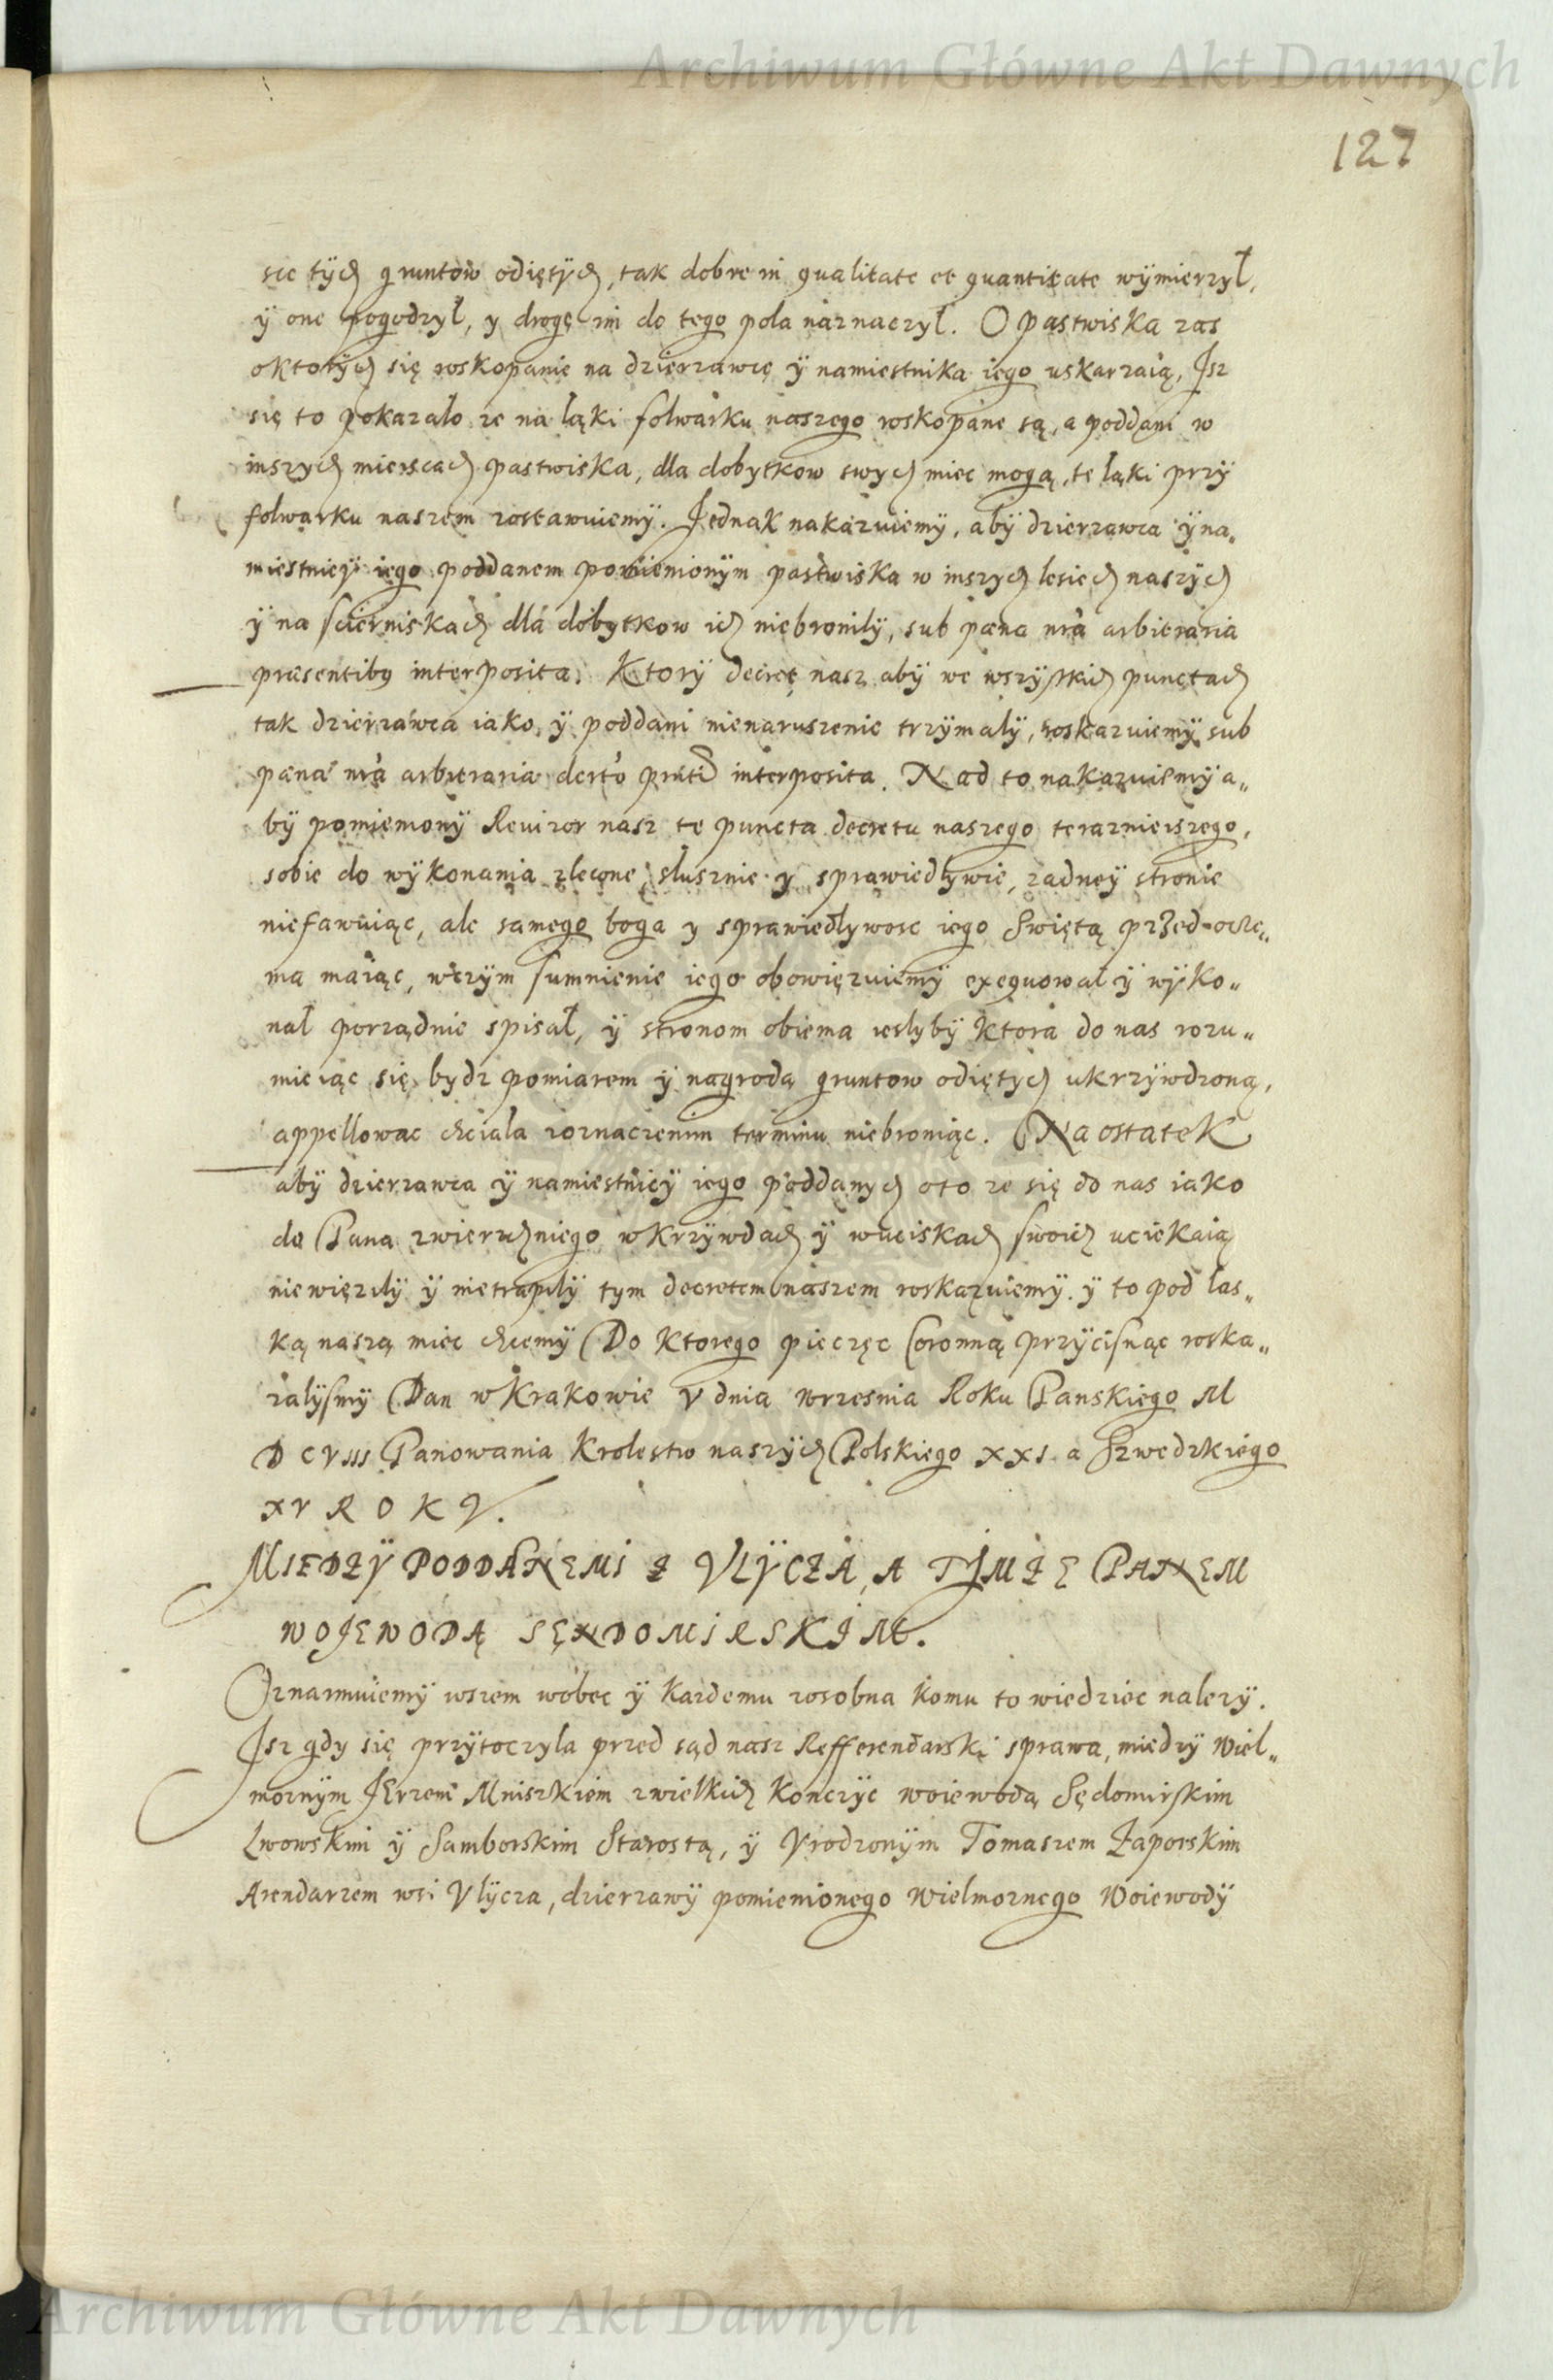 Archiwum Główne Akt Dawnych
127
sie tÿch gruntow odiętÿch, tak dobre in qualitate et quantitate wÿmierzył,
ÿ one pogodzył, y drogę im do tego pola náznaczył. O pastwiska zas
oktorÿch się roskopanie na dzierzawcę ÿ namiestnika iego uskarzaią, Isz
się to pokazało ze na łąki folwarku naszego roskopane są, a poddani w
inszych miejscach pastwiska, dla dobytkow swych miec mogą, te łąki przÿ
folwarku naszem zostawuiemÿ. Jednak nakazuiemy, abÿ dzierzawca ÿ na„
miestnicÿ iego poddanem pomienionÿm pastwiska w inszych lesiech naszÿch
ÿ na ścierniskach dla dobytkow ich niebronilÿ, sub pæna nrã arbitraria
præsentibus interposita. Ktorÿ decret nasz abÿ we wszÿstkich punctach
tak dzierzawca iako ÿ poddani nienaruszenie trzÿmalÿ, roskazuiemÿ sub
pæna nrã arbitraria interposita. Nad to nakazuiemÿ a„
bÿ pomienionÿ Revizor nasz te puncta decretu naszego terazniejszego,
sobie do wÿkonania zlecone, słusznie y sprawiedlywie, zadneÿ stronie
niefawuiąc, ale samego boga y sprawiedlywosc iego Swiętą przed ocze„
ma maiąc, wczym sumnienie iego obowięzuiemÿ exequował ÿ wÿko„
nał porządnie spisał, ÿ stronom obiema ieslybÿ ktora do nas rozu„
mieiąc się bydz pomiarem ÿ nagrodą gruntow odiętych ukrzÿwdzoną,
appellowac chciała zoznaczenim terminu niebroniąc. Na ostatek
abÿ dzierzawca ÿ namiestnicÿ iego poddanych oto ze się do nas iako
do Pana zwierzchniego wkrzÿwdach ÿ wuciskach swoich uciekaią
niewięzilÿ ÿ nietrapilÿ tym decretem naszem roskazuiemy. ÿ to pod łas„
ką naszą miec chcemy Do ktorego pieczęc Coronną przÿcisnąc roska„
zalysmÿ Dan w Krakowie V dnia wrzesnia Roku Panskiego M
D C VIII Panowania Krolestw naszÿch Polskiego XXI a Szwedzkiego
XV ROKV.
MIEDZŸ PODDANEMI Z VLŸCZA, A TYMZE PANEM
WOJEWODĄ SĘNDOMIRSKIM.
Oznaimuiemÿ wszem wobec ÿ kazdemu zosobna komu to wiedziec nalezÿ.
Isz gdy się przÿtoczyla przed sąd nasz Refferendarski sprawa, miedzÿ Wiel„
moznÿm JErzem Mniszkiem zwielkich Konczÿc woiewodą Sędomirskim
Lwowskim ÿ Samborskim Starostą, ÿ Vrodzonÿm Tomaszem Zaporskim
Arendarzem wsi Vlÿcza, dzierzawÿ pomienionego Wielmoznego Woiewodÿ
Archiwum Główne Akt Dawnych